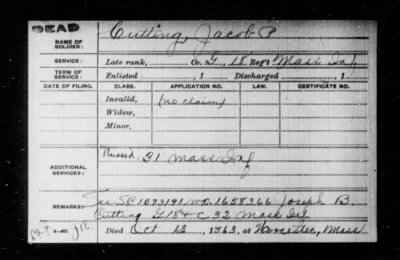 DEAD
NAME OF SOLDIER: Cutting, Jacob P
SERVICE: Late rank, Co. G, 18 Reg't Mass Inf
TERM OF SERVICE: Enlisted , 1 Discharged , 1
DATE OF FILING. CLASS. APPLICATION NO. LAW. CERTIFICATE NO.
Invalid, (no claim)
Widow,
Minor,
ADDITIONAL SERVICES: 31 Mass Inf
REMARKS: See SC 1073191 W.O. 1658366 Joseph B.
Cutting G 18 + C 32 Mass Inf
Died Oct 12, 1863, at Worcester, Mass